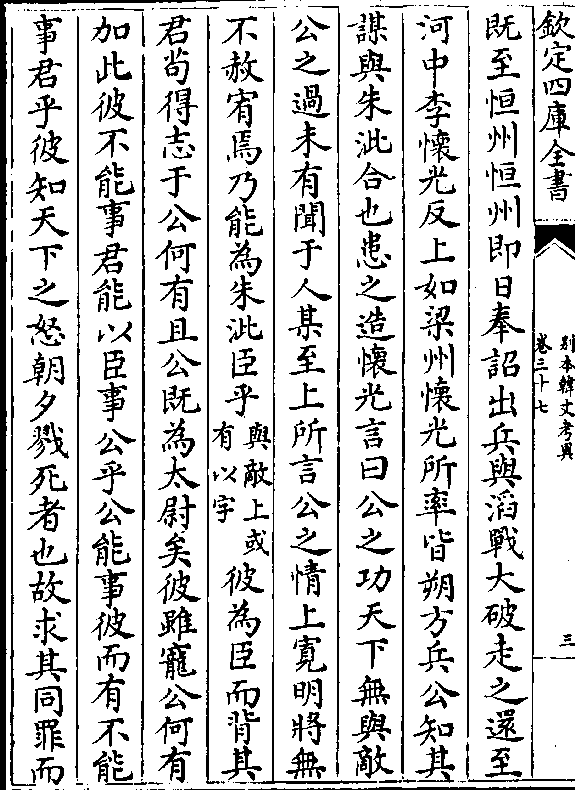 欽定四庫全書
別本韓文考異
卷三十七
三
既至恒州恒州即日奉詔出兵與滔戰大破走之還至
河中李懷光反上如梁州懷光所率皆朔方兵公知其
謀與朱泚合也患之造懷光言曰公之功天下無與敵
公之過未有聞于人某至上所言公之情上寛明將無
不赦宥焉乃能為朱泚臣乎與敵上或有以字彼為臣而背其
君茍得志于公何有且公既為太尉矣彼雖寵公何有
加此彼不能事君能以臣事公乎公能事彼而有不能
事君乎彼知天下之怒朝夕戮死者也故求其同罪而